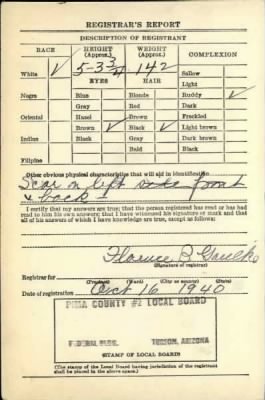 REGISTRAR'S REPORT
DESCRIPTION OF REGISTRANT
RACE HEIGHT (Approx.) WEIGHT (Approx.) COMPLEXION
White ✓ 5-3 3/4 142 Sallow
EYES HAIR Light
Negro Blue Blonde Ruddy ✓
Gray Red Dark
Oriental Hazel Brown Freckled
Brown ✓ Black ✓ Light brown
Indian Black Gray Dark brown
Bald Black
Filipino
Other obvious physical characteristics that will aid in identification
Scar on left side front
& back
I certify that my answers are true; that the person registered has read or has had
read to him his own answers; that I have witnessed his signature or mark and that
all of his answers of which I have knowledge are true, except as follows:
Florence B.
(Signature of registrar)
Registrar for
(Precinct) (Ward) (City or county) (State)
Date of registration Oct 16 1940
PIMA COUNTY #2 LOCAL BOARD
FEDERAL BLDG. TUCSON, ARIZONA
(STAMP OF LOCAL BOARD)
(The stamp of the Local Board having jurisdiction of the registrant
shall be placed in the above space.)